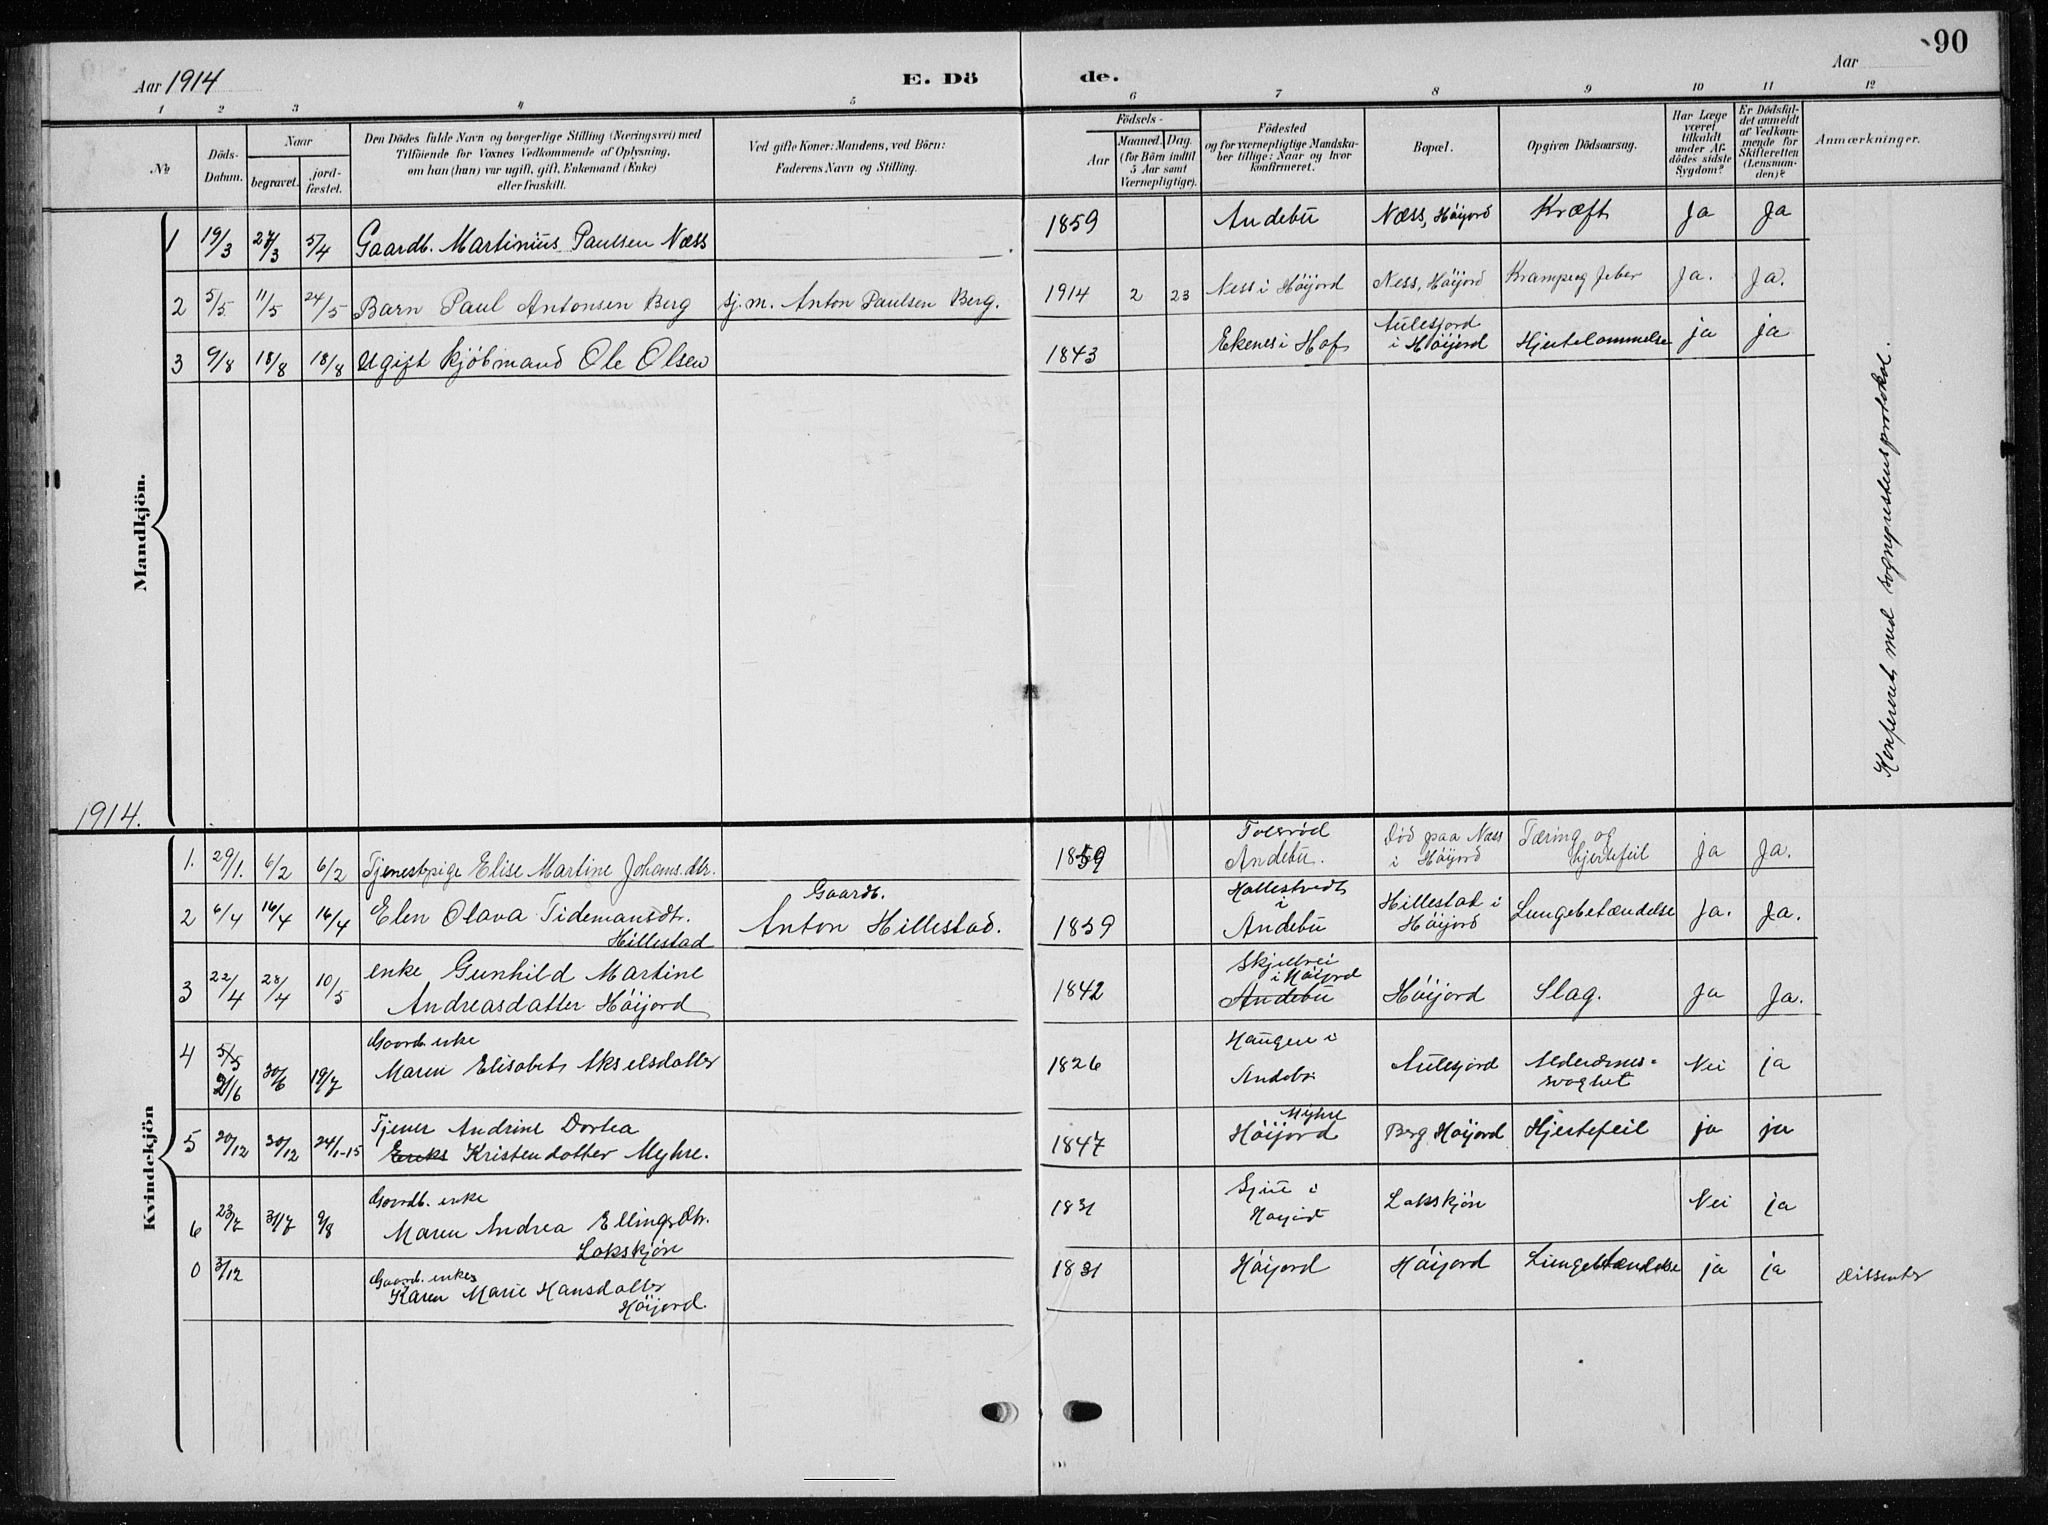 90
Aar 1914
E. Dö
de.
Aar
1 2 3 4 5 6 7 8 9 10 11 12
No
Döds-
Datum.
Naar
begravet.
jord-
fæstet.
Den Dödes fulde Navn og borgerlige Stilling (Næringsvei) med
Tilföiende for Voxnes Vedkommende af Oplysning,
om han (hun) var ugift, gift, Enkemand (Enke)
eller fraskilt.
Ved gifte Koner: Mandens, ved Börn:
Faderens Navn og Stilling.
Födsels-
Aar
Maaned. Dag.
(for Börn indtil
5 Aar samt
Værnepligtige).
Födested
og for værnepligtige Mandska-
ber tillige: Naar og hvor
konfirmeret.
Bopæl.
Opgiven Dödsaarsag.
Har Læge
været
tilkaldt
under Af-
dödes sidste
Sygdom?
Er Dödsfal-
det anmeldt
af Vedkom-
mende for
Skifteretten
(Lensman-
den)?
Anmærkninger.
Mandkjön.
1 19/3 27/3 5/4 Gaardb. Martinius Paulsen Næss 1859 Andebu Næss, Höijord Kræft Ja Ja
2 5/5 11/5 24/5 Barn Paul Antonsen Berg sj.m. Anton Paulsen Berg. 1914 2 23 Ness i Höijord Ness, Höijord Krampe og feber Ja. Ja.
3 9/8 18/8 18/8 Ugift kjöbmand Ole Olsen 1843 Ekenes i Hof Aulesjord i Höijord Hjertelammelse ja ja
Konfereret med sogneprestens protokol.
1914.
Kvindekjön
1. 29/1. 6/2 6/2 Tjenestpige Elise Martine Johansdtr. 1859 Tolsröd Andebu. Död paa Næss i Höijord Tæring og hjertefeil ja Ja.
2 6/4 16/4 16/4 Elen Olava Tidemansdtr. Hillestad Gaardb. Anton Hillestad. 1859 Hallestvedt i Andebu Hillestad i Höijord Lungebetændelse Ja. Ja.
3 22/4 28/4 10/5 enke Gunhild Martine
Andreasdatter Höijord 1842 Skjellvei i Höijord Andebu Höijord Slag. Ja Ja.
4 5/5 21/6 30/6 19/7 Gaardb. enke
Maren Elisabet Akselsdatter 1826 Haugen i Andebu Aulesjord Alderdoms-svaghet Nei ja
5 20/12 30/12 24/1-15 Tjener Andrine Dortea
Kristendatter Myhre. 1847 Myhre Höijord Berg Höijord Hjertefeil ja ja
6 23/7 31/7 9/8 Gaardb. enke
Maren Andrea Ellingsdtr.
Lakskjön 1831 i Höijord Lakskjön Nei ja
0 3/12 Gaardb. enke
Karen Marie Hansdatter
Höijord. 1831 Höijord Höijord Lungebetændelse ja ja Dissenter